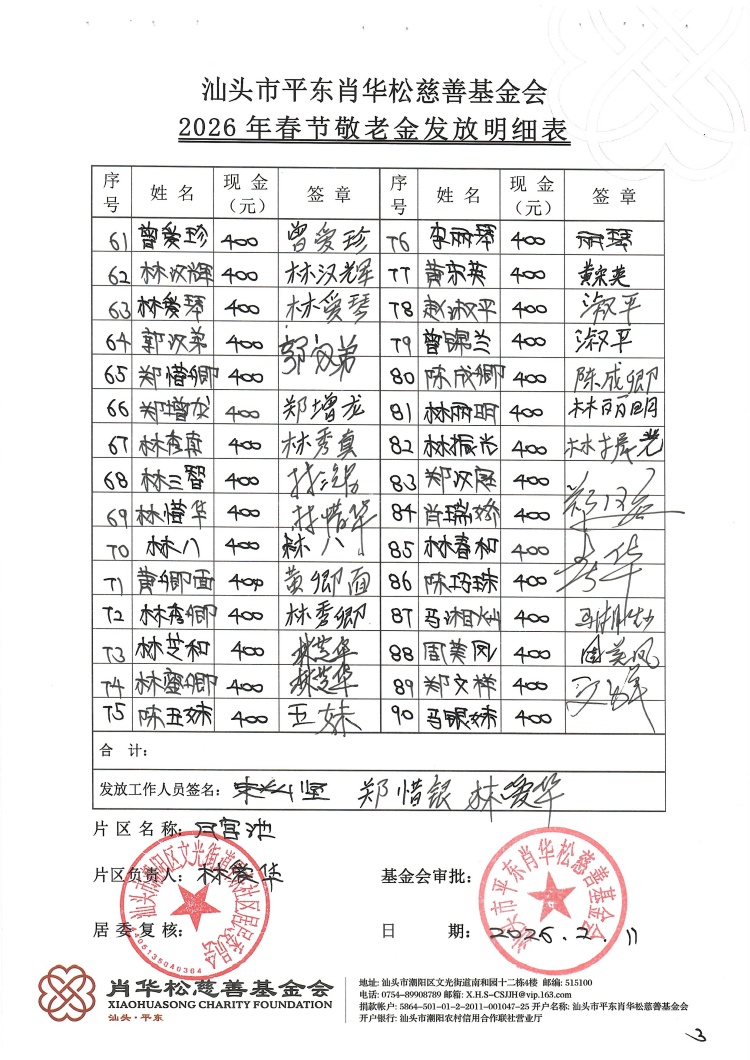 汕头市平东肖华松慈善基金会
2026年春节敬老金发放明细表
序号 姓名 现金（元） 签章 序号 姓名 现金（元） 签章
61 曾爱珍 400 曾爱珍 76 李丽琴 400 丽琴
62 林汉辉 400 林汉辉 77 黄宋英 400 黄宋英
63 林爱琴 400 林爱琴 78 赵淑平 400 淑平
64 郭汉弟 400 郭汉弟 79 曾锦兰 400 淑平
65 郑惜卿 400 80 陈成卿 400 陈成卿
66 郑增龙 400 郑增龙 81 林丽明 400 林丽明
67 林秀真 400 林秀真 82 林振光 400 林振光
68 林三智 400 83 郑汉庭 400
69 林惜华 400 林惜华 84 肖瑞娇 400
70 林八 400 林八 85 林春和 400
71 黄卿面 400 黄卿面 86 陈巧珠 400
72 林秀卿 400 林秀卿 87 马湘灿 400
73 林芝和 400 林芝华 88 周美凤 400 周美凤
74 林蜜卿 400 林芝华 89 郑文祥 400
75 陈玉妹 400 玉妹 90 马银妹 400
合计：
发放工作人员签名： 郑惜银 林爱华
片区名称：
片区负责人： 林爱华 基金会审批：
居委复核： 日期： 2026.2.11
4405135040364
汕头市平东肖华松慈善基金会
肖华松慈善基金会
XIAOHUASONG CHARITY FOUNDATION
汕头·平东
地址: 汕头市潮阳区文光街道南和园十二栋4楼 邮编: 515100
电话: 0754-89908789 邮箱: X.H.S-CSJJH@vip.163.com
捐款帐户: 5864-501-01-2-2011-001047-25 开户名称: 汕头市平东肖华松慈善基金会
开户银行: 汕头市潮阳农村信用合作联社营业厅
3